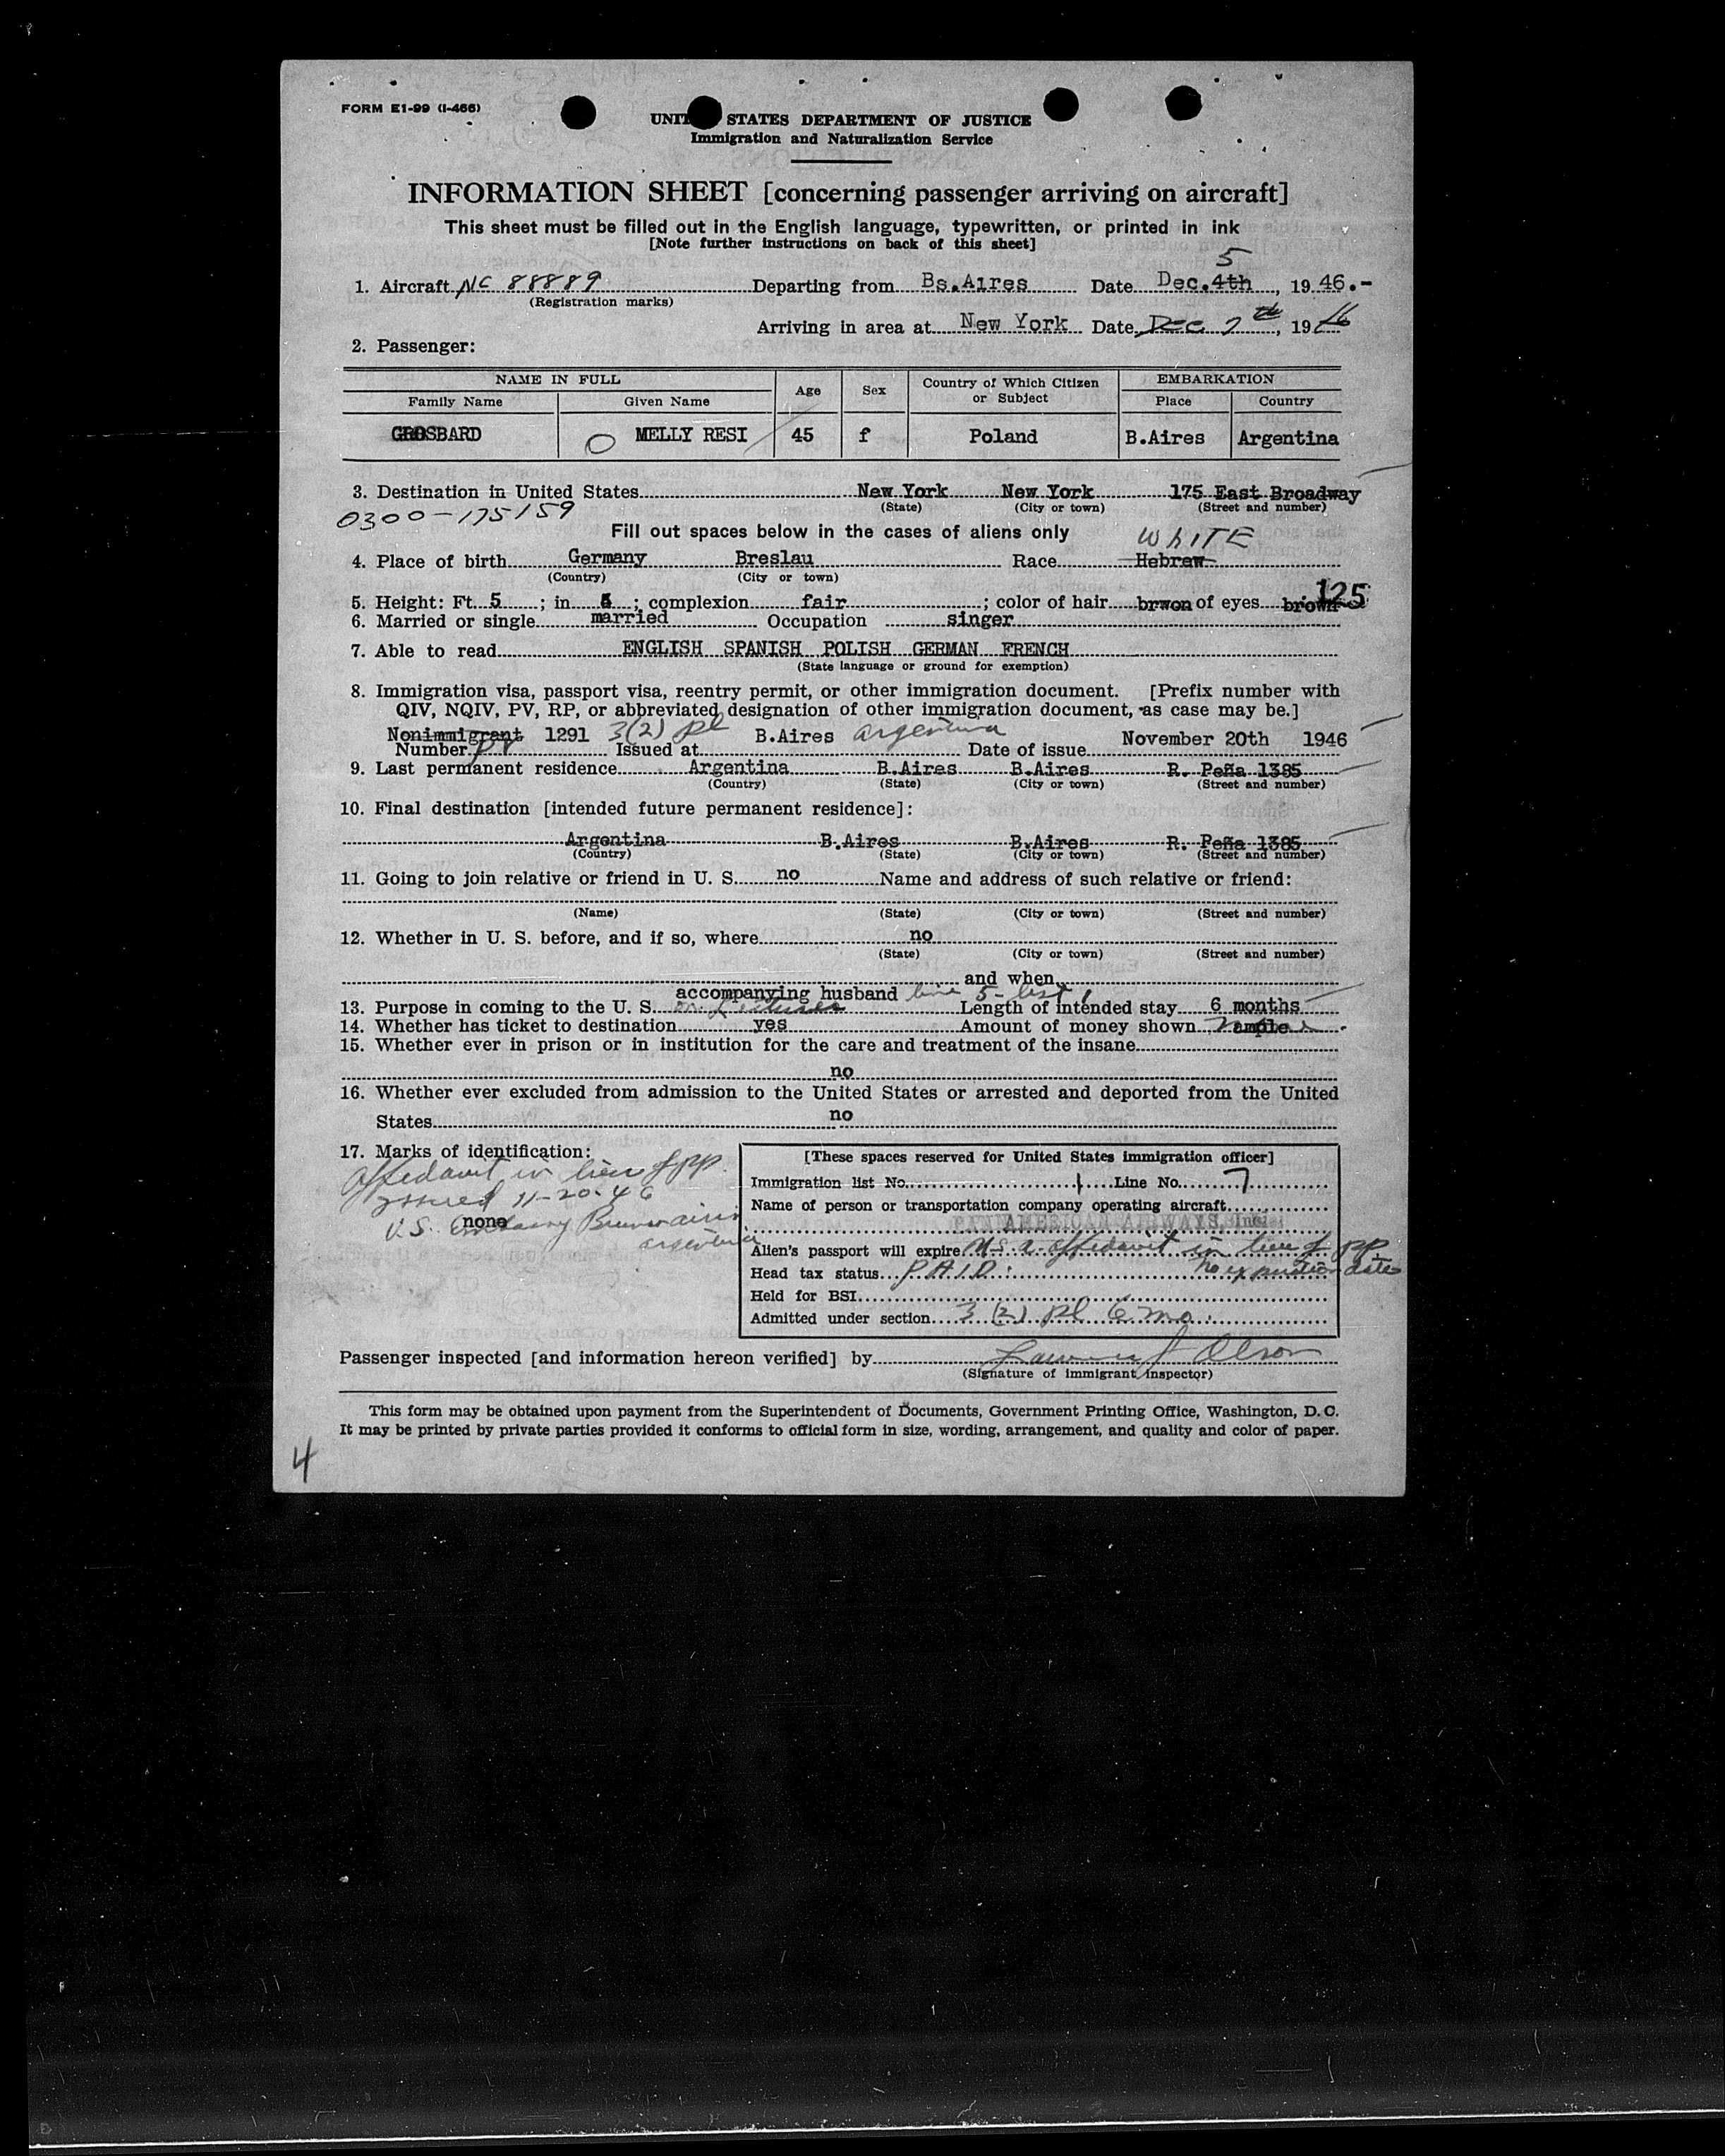 FORM E1-99 (I-466)
UNITED STATES DEPARTMENT OF JUSTICE
Immigration and Naturalization Service
INFORMATION SHEET [concerning passenger arriving on aircraft]
This sheet must be filled out in the English language, typewritten, or printed in ink
[Note further instructions on back of this sheet]
5
1. Aircraft NC 88889 Departing from Bs.Aires Date Dec.4th, 1946.-
(Registration marks)
Arriving in area at New York Date Dec 7th, 1946
2. Passenger:
NAME IN FULL Age Sex Country of Which Citizen or Subject EMBARKATION
Family Name Given Name Place Country
GROSBARD O MELLY RESI 45 f Poland B.Aires Argentina
3. Destination in United States New York New York 175 East Broadway
(State) (City or town) (Street and number)
0300-175159
Fill out spaces below in the cases of aliens only
WhITE
4. Place of birth Germany Breslau Race Hebrew
(Country) (City or town)
125
5. Height: Ft. 5; in ; complexion fair; color of hair brwon of eyes brown
6. Married or single married Occupation singer
7. Able to read ENGLISH SPANISH POLISH GERMAN FRENCH
(State language or ground for exemption)
8. Immigration visa, passport visa, reentry permit, or other immigration document. [Prefix number with
QIV, NQIV, PV, RP, or abbreviated designation of other immigration document, as case may be.]
Nonimmigrant 1291 3(2) pl B.Aires Argentina November 20th 1946
Number PV Issued at Date of issue
9. Last permanent residence Argentina B.Aires B.Aires R. Peña 1385
(Country) (State) (City or town) (Street and number)
10. Final destination [intended future permanent residence]:
Argentina B.Aires B.Aires R. Peña 1385
(Country) (State) (City or town) (Street and number)
11. Going to join relative or friend in U. S. no Name and address of such relative or friend:
(Name) (State) (City or town) (Street and number)
12. Whether in U. S. before, and if so, where no
(State) (City or town) (Street and number)
and when
accompanying husband line 5- list 1
13. Purpose in coming to the U. S. on lectures Length of intended stay 6 months
14. Whether has ticket to destination yes Amount of money shown ample
15. Whether ever in prison or in institution for the care and treatment of the insane
no
16. Whether ever excluded from admission to the United States or arrested and deported from the United
States no
17. Marks of identification:
Affedavit in lieu of pp.
issued 11-20-46
U.S. Embassy Buenos aires
none
argentina
[These spaces reserved for United States immigration officer]
Immigration list No. 1 Line No. 7
Name of person or transportation company operating aircraft
PAN AMERICAN AIRWAYS, Inc.
Alien's passport will expire U.S.A. affedavit in lieu of pp.
no expiration date
Head tax status PAID.
Held for BSI
Admitted under section 3 (2) pl 6 mo.
Passenger inspected [and information hereon verified] by Lawrence J Olson
(Signature of immigrant inspector)
This form may be obtained upon payment from the Superintendent of Documents, Government Printing Office, Washington, D. C.
It may be printed by private parties provided it conforms to official form in size, wording, arrangement, and quality and color of paper.
4